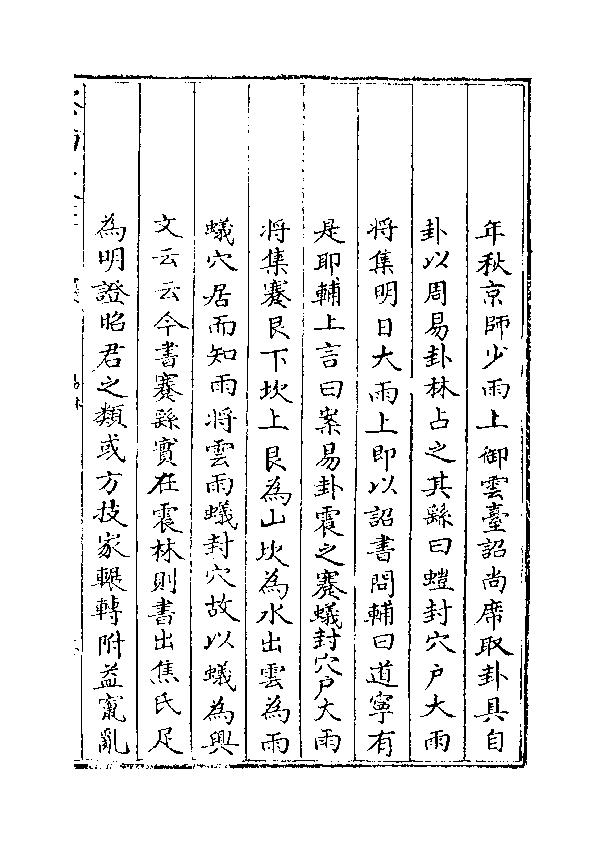 年秋京師少雨上御雲臺詔尚席取卦具自
卦以周易卦林占之其繇曰螘封穴戶大雨
將集明日大雨上即以詔書問輔曰道寧有
是耶輔上言曰案易卦震之蹇蟻封穴戶大雨
將集蹇艮下坎上艮為山坎為水出雲為雨
蟻穴居而知雨將雲雨蟻封穴故以蟻為興
文云云今書蹇繇實在震林則書出焦氏足
為明證昭君之類或方技家輾轉附益竄亂
易林